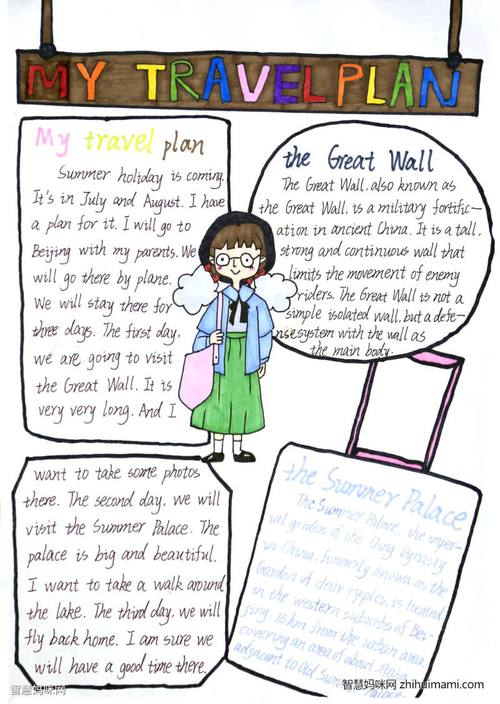 MY TRAVEL PLAN
My travel plan
Summer holiday is coming.
It's in July and August. I have
a plan for it. I will go to
Beijing with my parents. We
will go there by plane.
We will stay there for
three days. The first day,
we are going to visit
the Great Wall. It is
very very long. And I
want to take some photos
there. The second day, we will
visit the Summer Palace. The
palace is big and beautiful.
I want to take a walk around
the lake. The third day, we will
fly back home. I am sure we
will have a good time there.
the Great Wall
The Great Wall, also known as
the Great Wall, is a military fortific-
ation in ancient China. It is a tall,
strong and continuous wall that
limits the movement of enemy
riders. The Great Wall is not a
simple isolated wall, but a defe-
nse system with the wall as
the main body.
the Summer Palace
The Summer Palace, the imper-
ial garden of the Qing Dynasty
in China, formerly known as the
Garden of clear ripples, is located
in the western suburbs of Bei-
jing, 15km from the urban area,
covering an area of about
adjacent to Old Summer
Palace.
智慧妈咪网
智慧妈咪网 zhihuimami.com